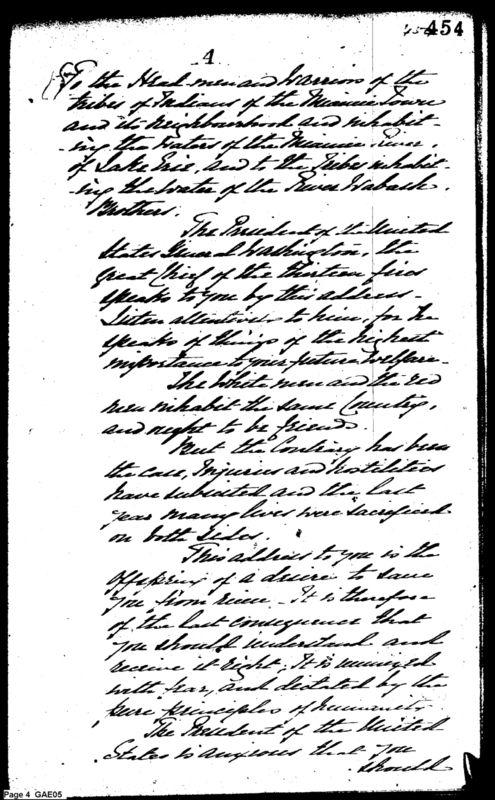 454
4
To the Head-men and Warriors of the
tribes of Indians of the Miamie Town
and its Neighbourhood and inhabit-
-ing the Waters of the Miamie River,
of Lake Erie, and to the tribes inhabit-
-ing the Water of the River Wabash.
Brothers.
The President of the United
States General Washington, the
great Chief of the thirteen fires
speaks to you by this address-
Listen attentively to him, for he
speaks of things of the highest
importance to your future Welfare-
The White men and the red
men inhabit the same Country,
and ought to be friends
But the Contrary has been
the case, Injuries and hostilities
have subsisted and the last
year many lives were sacrificed
on both sides.
This address to you is the
Offspring of a desire to save
you from ruin. It is therefore
of the last consequence that
you should understand and
receive it right; It is unmixed
with fear, and dictated by the
pure principles of humanity
The President of the United
States is anxious that you
should
Page 4 GAE05